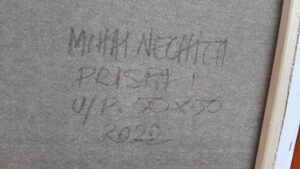 MIHAI NECHITA
PRISPA
U/P. 50x50
2022